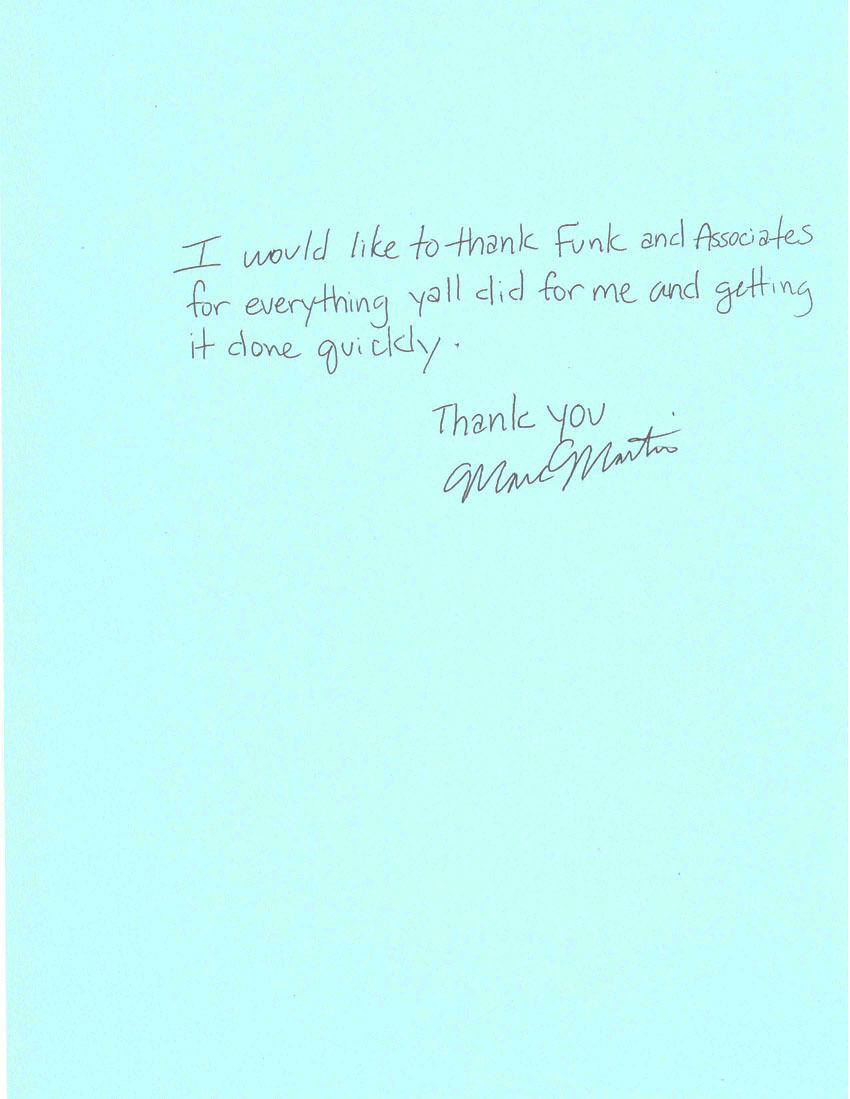 I would like to thank Funk and Associates
for everything yall did for me and getting
it done quickly.
Thank you
Marc Martin